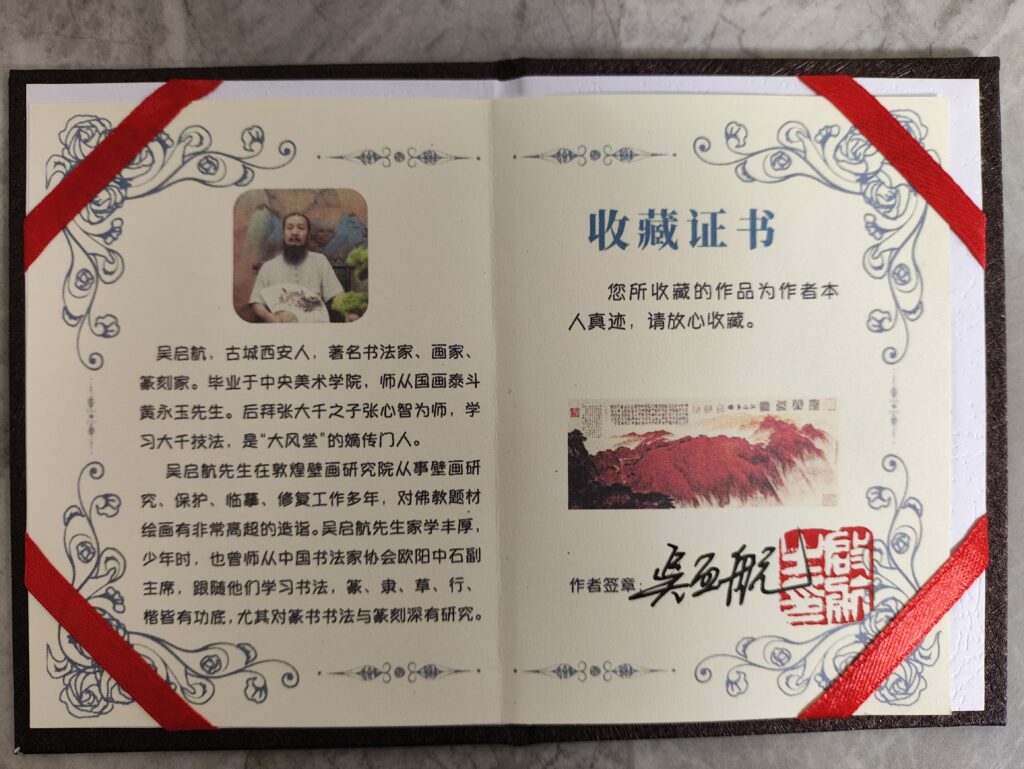 吴启航，古城西安人，著名书法家、画家、
篆刻家。毕业于中央美术学院，师从国画泰斗
黄永玉先生。后拜张大千之子张心智为师，学
习大千技法，是“大风堂”的嫡传门人。
吴启航先生在敦煌壁画研究院从事壁画研
究、保护、临摹、修复工作多年，对佛教题材
绘画有非常高超的造诣。吴启航先生家学丰厚，
少年时，也曾师从中国书法家协会欧阳中石副
主席，跟随他们学习书法，篆、隶、草、行、
楷皆有功底，尤其对篆书书法与篆刻深有研究。
收藏证书
您所收藏的作品为作者本
人真迹，请放心收藏。
作者签章：